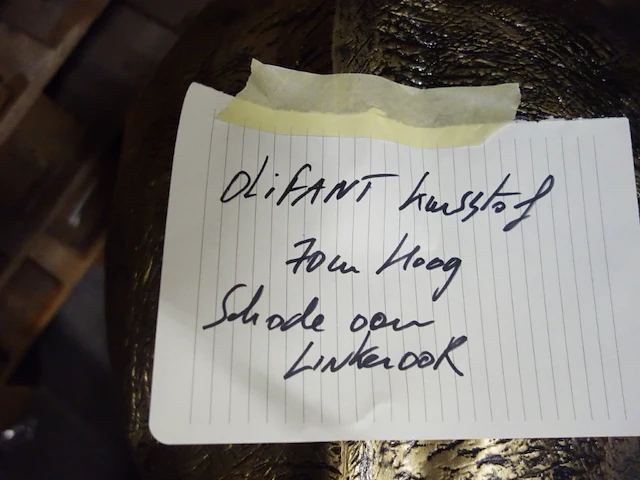 OLiFANT kunststof
70cm Hoog
Schade aan
LINKEROOR